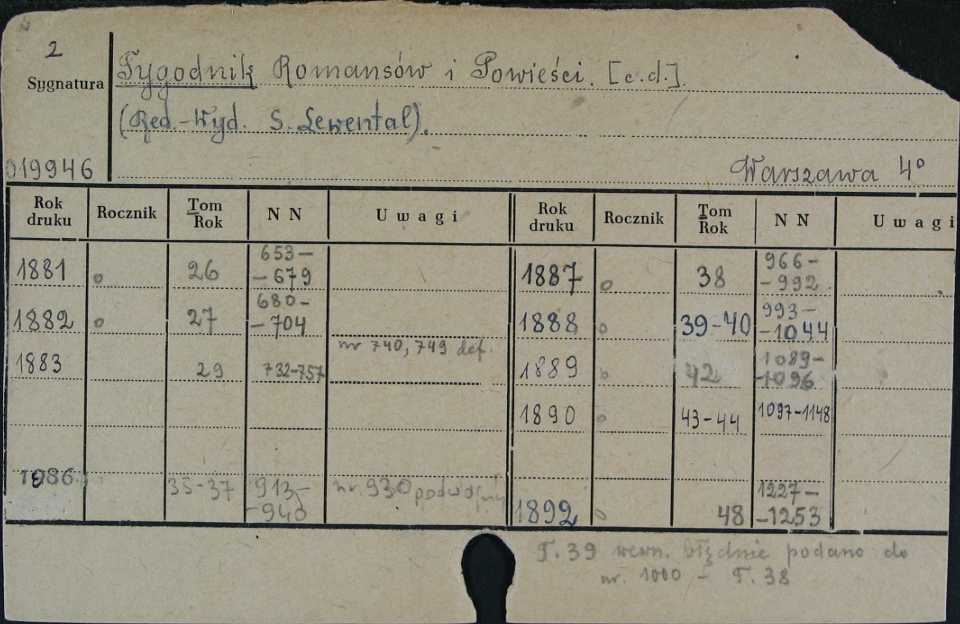 2
Sygnatura
Tygodnik Romansów i Powieści. [c.d.]
(Red.-Wyd. S. Lewental).
019946
Warszawa 4°
Rok druku Rocznik Tom Rok N N Uwagi Rok druku Rocznik Tom Rok N N Uwagi
1881 o 26 653-
-679
1887 o 38 966-
-992
1882 o 27 680-
-704
1888 o 39-40 993-
-1044
1883 29 732-757 nr 740, 749 def.
1889 o 42 1089-
-1096
1890 o 43-44 1097-1148
1886 35-37 913-
-940 nr. 930 podwójny
1892 o 48 1227-
-1253
T. 39 wewn. błędnie podano do
nr. 1000 - T. 38